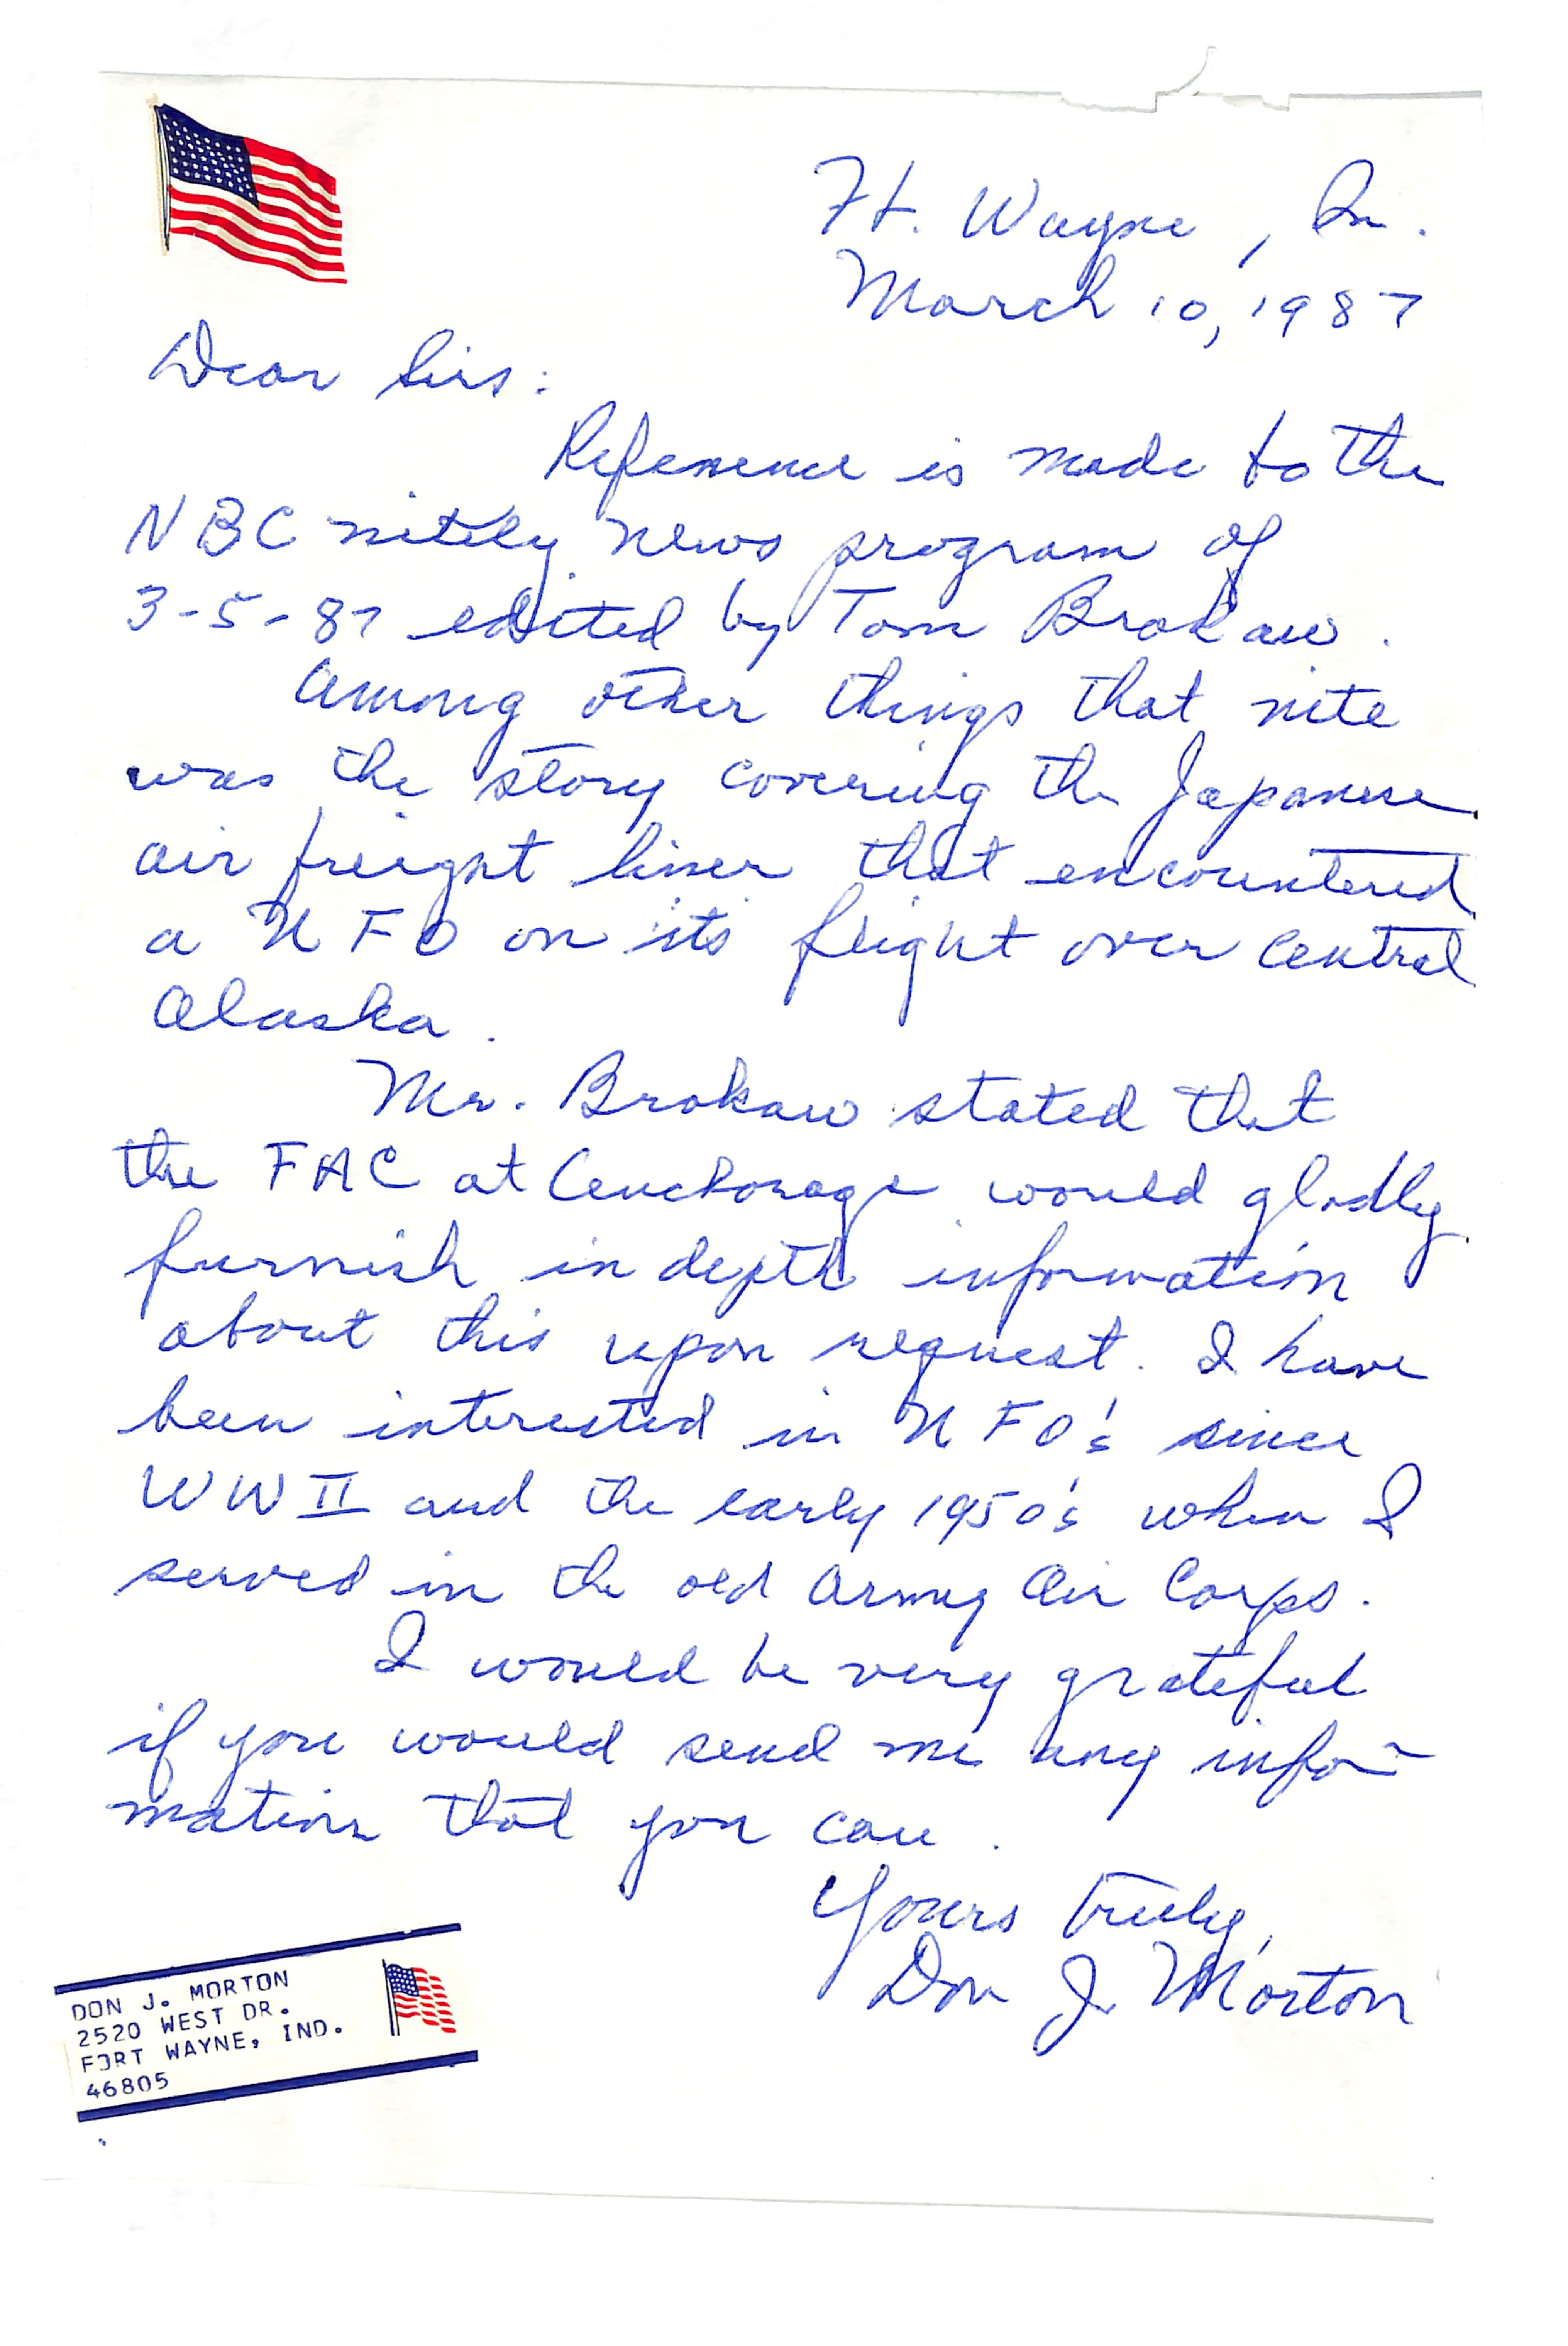 Ft. Wayne, In.
March 10, 1987
Dear Sirs:
Reference is made to the
NBC nitely news program of
3-5-87 edited by Tom Brokaw.
Among other things that nite
was the story covering the Japanese
air freight liner that encountered
a UFO on its flight over central
Alaska.
Mr. Brokaw stated that
the FAC at Anchorage would gladly
furnish in depth information
about this upon request. I have
been interested in UFO's since
WW II and the early 1950's when I
served in the old Army Air Corps.
I would be very grateful
if you would send me any infor-
mation that you can.
Yours truly,
Don J. Morton
DON J. MORTON
2520 WEST DR.
FORT WAYNE, IND.
46805